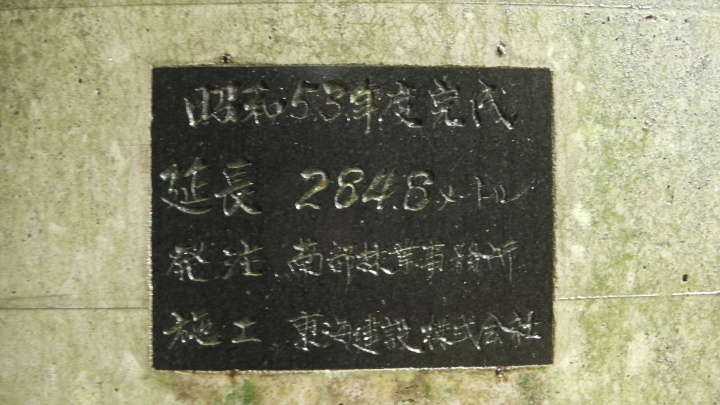 昭和53年度完成
延長 284.8メートル
発注 南部林業事務所
施工 東海建設株式会社